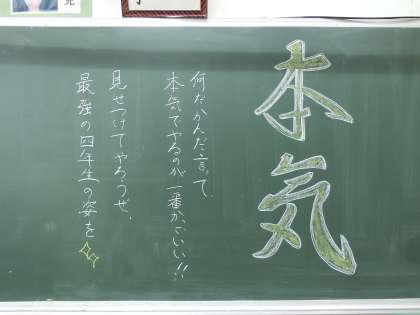 本気
何だかんだ言って、
本気でやるのが一番かっこいい!!
見せつけてやろうぜ、
最強の四年生の姿を